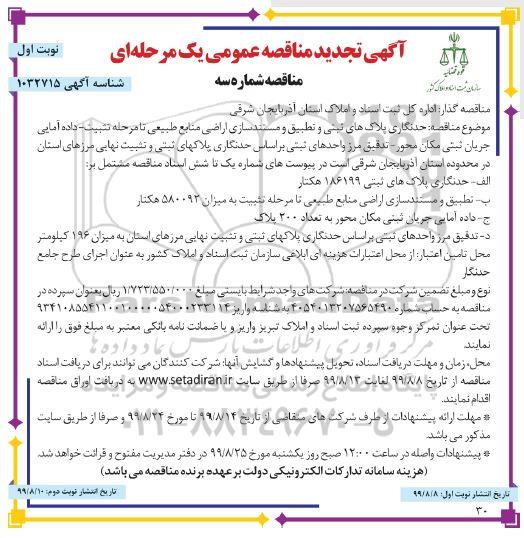 نوبت اول
آگهی تجدید مناقصه عمومی یک مرحله‌ای
مناقصه شماره سه
شناسه آگهی ۱۰۳۲۷۱۵
قوه قضائیه
سازمان ثبت اسناد و املاک کشور
مناقصه گذار: اداره کل ثبت اسناد و املاک استان آذربایجان شرقی
موضوع مناقصه: حدنگاری پلاک های ثبتی و تطبیق و مستندسازی اراضی منابع طبیعی تا مرحله تثبیت-داده آمایی
جریان ثبتی مکان محور-تدقیق مرز واحدهای ثبتی براساس حدنگاری پلاکهای ثبتی و تثبیت نهایی مرزهای استان
در محدوده استان آذربایجان شرقی است در پیوست های شماره یک تا شش اسناد مناقصه مشتمل بر:
الف- حدنگاری پلاک های ثبتی ۱۸۶۱۹۹ هکتار
ب- تطبیق و مستندسازی اراضی منابع طبیعی تا مرحله تثبیت به میزان ۵۸۰۰۹۲ هکتار
ج- داده آمایی جریان ثبتی مکان محور به تعداد ۲۰۰ پلاک
د- تدقیق مرز واحدهای ثبتی براساس حدنگاری پلاکهای ثبتی و تثبیت نهایی مرزهای استان به میزان ۱۹۶ کیلومتر
محل تامین اعتبار: از محل اعتبارات هزینه ای ابلاغی سازمان ثبت اسناد و املاک کشور به عنوان اجرای طرح جامع
حدنگار
نوع و مبلغ تضمین شرکت در مناقصه: شرکت های واجد شرایط بایستی مبلغ ۱/۷۲۳/۵۵۰/۰۰۰ ریال بعنوان سپرده در
مناقصه به حساب شماره ۴۰۵۴۰۱۳۲۰۷۵۶۵۴۹۰ به شناسه واریز
تحت عنوان تمرکز وجوه سپرده ثبت اسناد و املاک تبریز واریز و یا ضمانت نامه بانکی معتبر به مبلغ فوق را ارائه
نمایند.
محل، زمان و مهلت دریافت اسناد، تحویل پیشنهادها و گشایش آنها: شرکت کنندگان می توانند برای دریافت اسناد
مناقصه از تاریخ ۹۹/۸/۸ لغایت ۹۹/۸/۱۳ صرفا از طریق سایت www.setadiran.ir به دریافت اوراق مناقصه
اقدام نمایند.
* مهلت ارائه پیشنهادات از طرف شرکت های متقاضی از تاریخ ۹۹/۸/۱۴ تا مورخ ۹۹/۸/۲۴ و صرفا از طریق سایت
مذکور می باشد.
* پیشنهادات واصله در ساعت ۱۲:۰۰ صبح روز یکشنبه مورخ ۹۹/۸/۲۵ در دفتر مدیریت مفتوح و قرائت خواهد شد.
(هزینه سامانه تدارکات الکترونیکی دولت بر عهده برنده مناقصه می باشد)
تاریخ انتشار نوبت اول: ۹۹/۸/۸
تاریخ انتشار نوبت دوم: ۹۹/۸/۱۰
۳۰